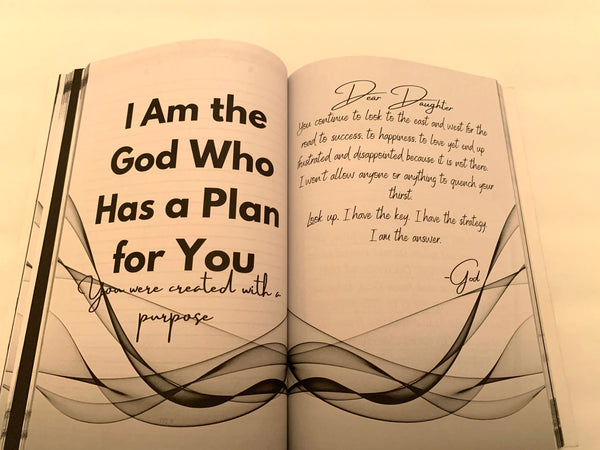 I Am the
God Who
Has a Plan
for You
You were created with a
purpose
Dear Daughter
You continue to look to the east and west for the
road to success, to happiness, to love yet end up
frustrated and disappointed because it is not there.
I won't allow anyone or anything to quench your
thirst.
Look up. I have the key. I have the strategy.
I am the answer.
-God